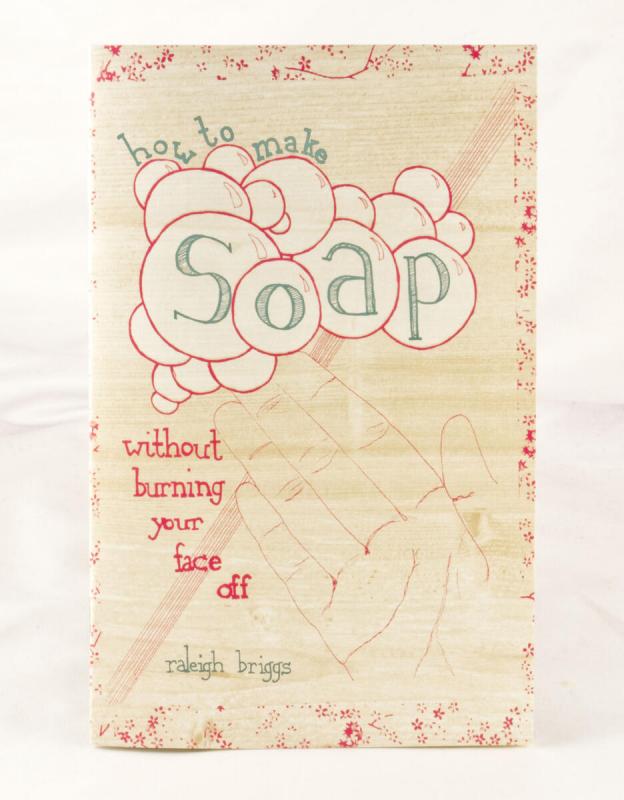 how to make
Soap
without
burning
your
face
off
raleigh briggs